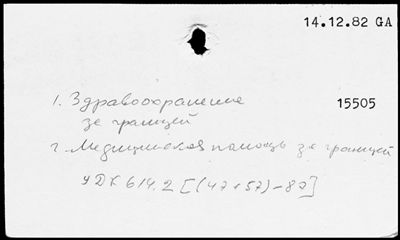 14.12.82 GA
1. Здравоохранение 15505
за границей
2. Медицинская помощь за границей
УДК 614.2 [(47+57)-87]